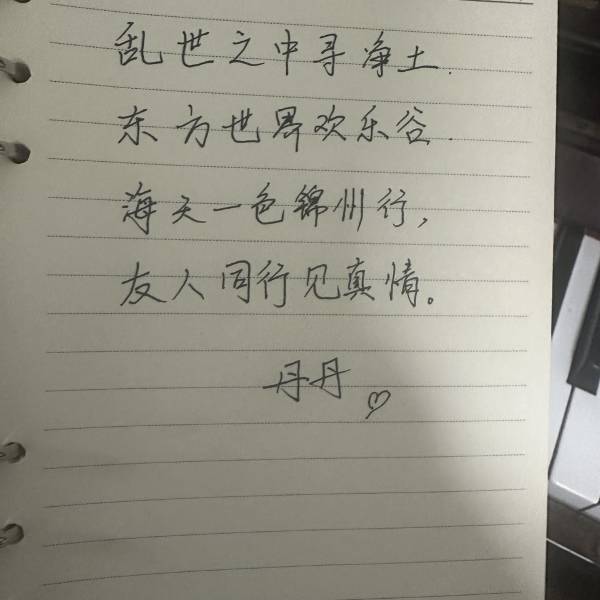 乱世之中寻净土.
东方世界欢乐谷.
海天一色锦州行,
友人同行见真情。
丹丹